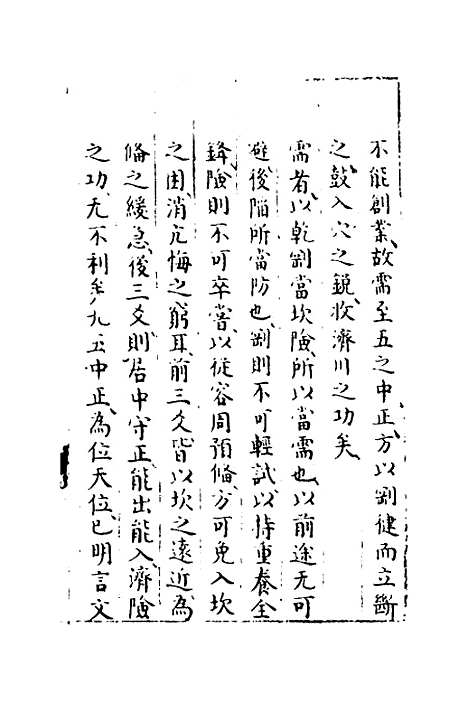 不能創業、故需至五之中正、方以剛健而立斷
之鼓入穴之銳、收濟川之功矣、
需者、以乾剛當坎險、所以當需也、以前途无可
避後陷所當防也、剛則不可輕試、以持重養全
鋒、險則不可卒嘗、以從容周預俻、方可免入坎
之困、消亢悔之窮耳、前三爻皆以坎之遠近為
俻之緩急、後三爻則居中守正、能出能入、濟險
之功、无不利矣、九五中正、為位天位、已明言文